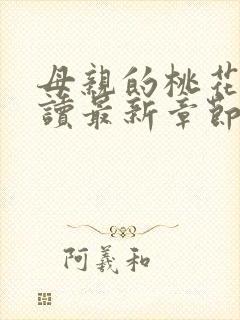 母親的桃花
讀最新章節
阿義和